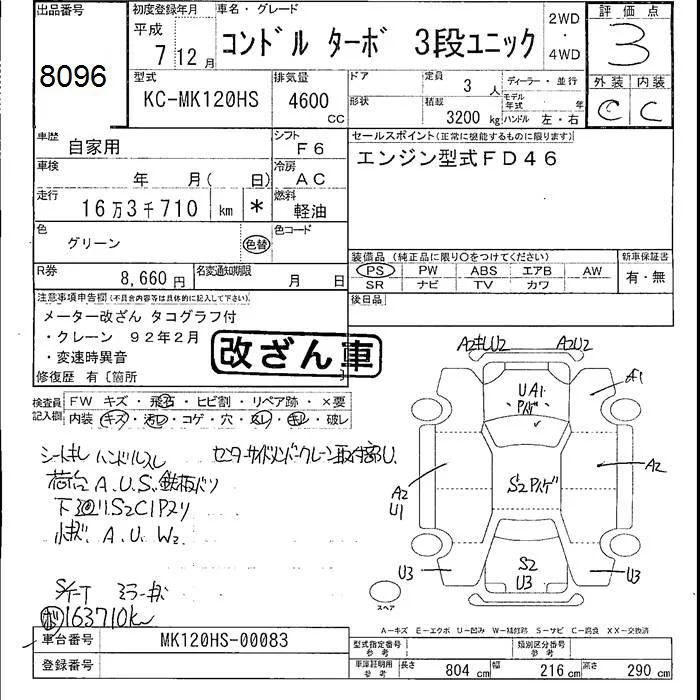 出品番号
8096
初度登録年月
平成
7 12月
車名・グレード
コンドル ターボ 3段ユニック
2WD
・
4WD
評価点
3
型式
KC-MK120HS
排気量
4600
CC
ドア
形状
定員
3人
積載
3200kg
ディーラー・並行
モデル年式 年
ハンドル 左・右
外装 内装
C C
車歴
自家用
シフト
F6
車検
年 月( 日)
冷房
AC
走行
16万3千710 km *
燃料
軽油
色
グリーン 色替
色コード
R券
8,660円
名変通知期限
月 日
セールスポイント(正常に機能するものに限ります)
エンジン型式FD46
装備品(純正品に限り○をつけてください)
PS PW ABS エアB AW
SR ナビ TV カワ
新車保証書
有・無
後日品
注意事項申告欄(不具合内容等は具体的に記入して下さい)
メーター改ざん タコグラフ付
・クレーン 92年2月
・変速時異音
修復歴 有〔箇所
改ざん車
検査員記入欄
FW キズ・飛石・ヒビ割・リペア跡・×要
内装 キズ・汚レ・コゲ・穴・スレ・キレ・破レ
シートキレ ハンドルスレ
センターサイドメンバークレーン取付部U.
荷台 A.U.S.鉄板バリ
下廻リS2C1Pヌリ
A.U.W2
S/T-T ミラーキズ
163710k
A2キU2
A2U2
UA1
A1
A2
U1
S2Pハゲ
A2
U3
S2
U3
U3
スペア
A−キズ E−エクボ U−凹み W−補修跡 S−サビ C−腐食 XX−交換済
車台番号
MK120HS-00083
登録番号
型式指定番号
参考
類別区分番号
参考
車庫証明用
参考
長さ 804 cm 幅 216 cm 高さ 290 cm